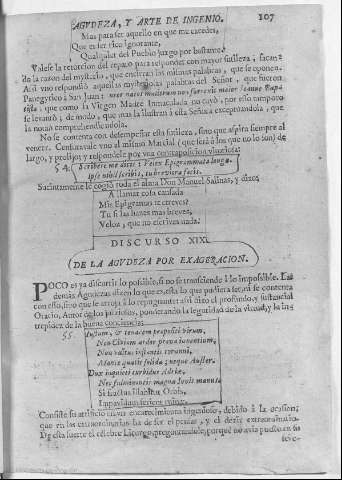 AGVDEZA, Y ARTE DE INGENIO. 107
Mas para ser aquello en que me excedes,
Que es ser rico ignorante,
Qualquier del Pueblo juzgo por bastante.
Valese la retorcion del reparo para responder con mayor sutileza; sacan-
do la razon del mysterio, que encierran las mismas palabras, que se oponen.
Assi vno respondiò aquellas mysteriosas palabras del Señor, que fueron
Panegyrico à San Juan: inter natos mulierum non surrexit maior Ioanne Bap-
tista, que como la Virgen Madre Inmaculada no cayò, por esso tampoco
se levantò; de modo, que mas la ilustran à esta Señora exceptuandola, que
la honra comprehendiendola.
No se contenta con desempeñar esta sutileza, sino que aspira siempre al
vencer. Censuravale vno al mismo Marcial (que serà à los que no lo son) de
largo, y prolijo; y respondele por vna contraposicion vitoriosa:
54. Scribere me dicis: Velox Epigrammata longa.
Ipse nihil scribis, tu breviora facis.
Sucintamente le cogiò toda el alma Don Manuel Salinas, y dize:
A llamar cosa cansada
Mis Epigramas te atreves?
Tu si las hazes mas breves,
Velox, que no escrives nada.
DISCURSO XIX.
DE LA AGVDEZA POR EXAGERACION.
POCO es ya discurrir lo possible, si no se trasciende à lo impossible. Las
demàs Agudezas dizen lo que es, esta lo que pudiera ser; ni se contenta
con esto, sino que se arroja à lo repugnante: assi dixo el profundo, y sustancial
Oracio, Autor de los juiziosos, ponderando la seguridad de la virtud, y la in-
trepidez de la buena conciencia:
55. Iustum, & tenacem propositi virum,
Non Civium ardor prava iubentium,
Non vultus instantis tyranni,
Mente quatit solida; neque Auster.
Dux inquieti turbidus Adriæ,
Nec fulminantis magna Iovis manus:
Si fractus illabitur Orbis,
Impavidum ferient ruinæ.
Consiste su artificio en vn encarecimiento ingenioso, debido à la ocasion;
que en las extraordinarias ha de ser el pensar, y el dezir extraordinario.
De esta suerte el célebre Licurgo, preguntandole, porquè no avia puesto en su